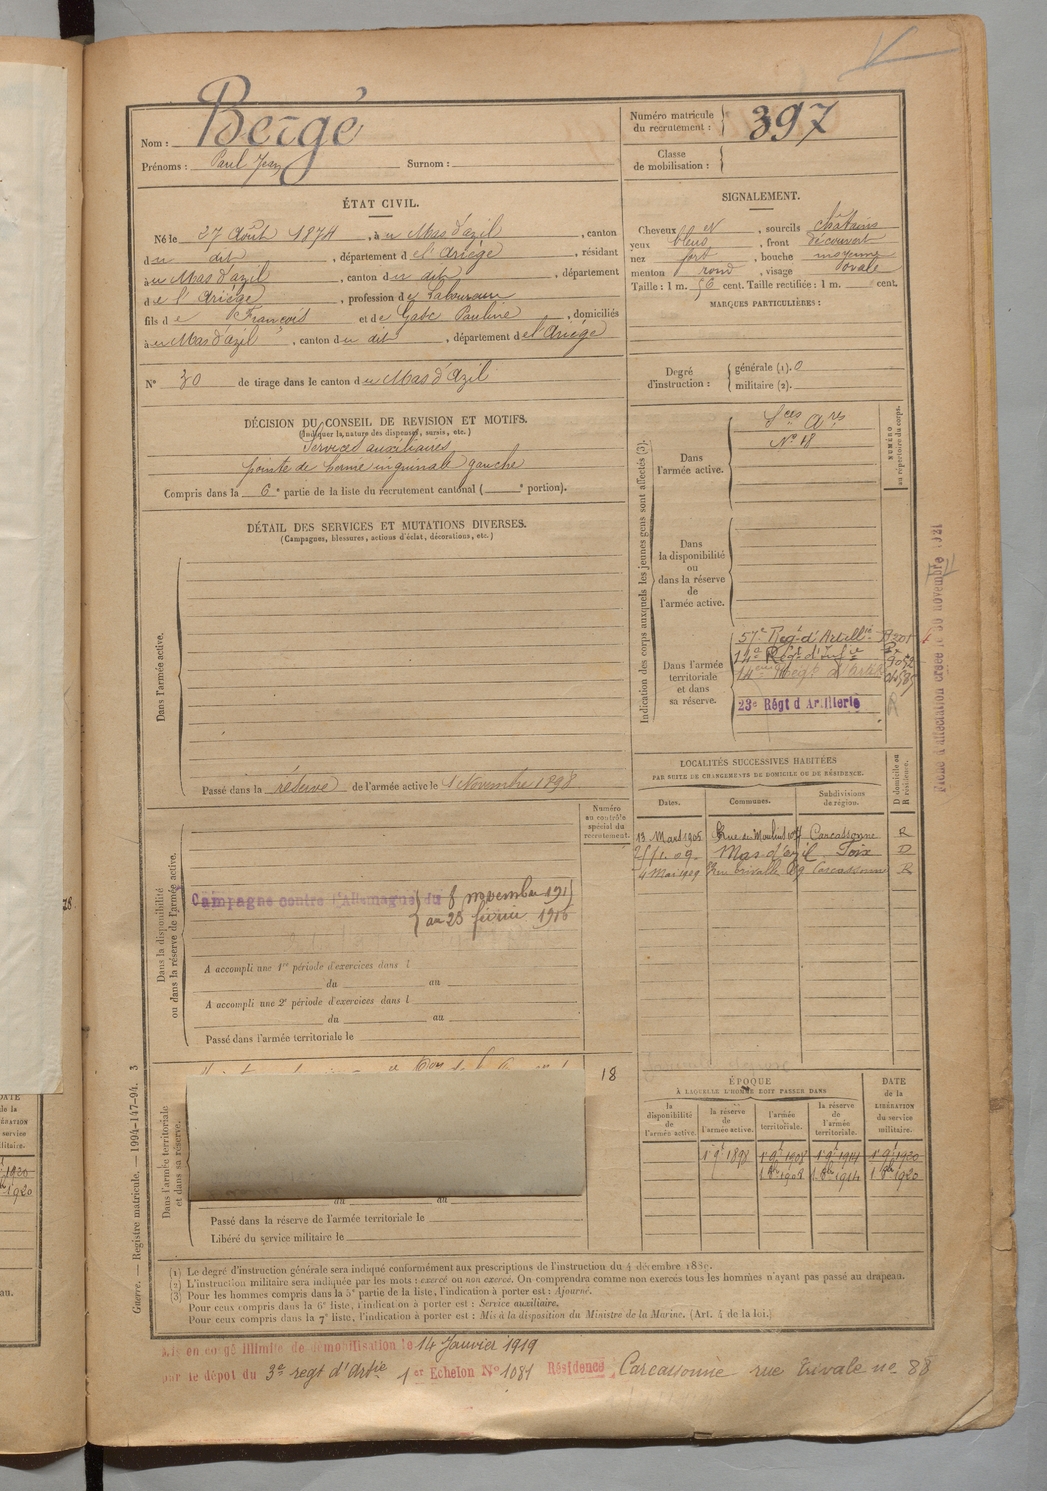 Nom : Bergé
Prénoms : Paul Jean Surnom :
Numéro matricule du recrutement : 397
Classe de mobilisation :
ÉTAT CIVIL.
Né le 27 Août 1874, à u Mas d'azil, canton
du dit, département de l'Ariège, résidant
à u Mas d'azil, canton du dit, département
de l'Ariège, profession de Laboureur
fils de François et de Gabe Pauline, domiciliés
à u Mas d'azil, canton du dit, département de l'Ariège
N° 30 de tirage dans le canton du Mas d'Azil
SIGNALEMENT.
Cheveux N, sourcils châtains
yeux bleus, front découvert
nez fort, bouche moyenne
menton rond, visage ovale
Taille : 1 m. 56 cent. Taille rectifiée : 1 m. cent.
MARQUES PARTICULIÈRES :
Degré d'instruction : générale (1). 0
militaire (2).
DÉCISION DU CONSEIL DE REVISION ET MOTIFS.
(Indiquer la nature des dispenses, sursis, etc.)
Services auxiliaires
pointe de hernie inguinale gauche
Compris dans la 6e partie de la liste du recrutement cantonal ( e portion).
DÉTAIL DES SERVICES ET MUTATIONS DIVERSES.
(Campagnes, blessures, actions d'éclat, décorations, etc.)
Dans l'armée active.
Passé dans la réserve de l'armée active le 1 Novembre 1898
Indication des corps auxquels les jeunes gens sont affectés (3).
NUMÉRO au répertoire du corps.
Dans l'armée active.
Sces Ares
N° 18
Dans la disponibilité ou dans la réserve de l'armée active.
Dans l'armée territoriale et dans sa réserve.
57e Régt d'Artillie
Régt d'Infie
23e Régt d'Artillerie
Fiche d'affectation créée le 30 novembre 1921
LOCALITÉS SUCCESSIVES HABITÉES
PAR SUITE DE CHANGEMENTS DE DOMICILE OU DE RÉSIDENCE.
Dates. Communes. Subdivisions de région. D domicile ou R résidence.
13 Mars 1905 Carcassonne R
Mas d'azil Foix D
4 Mai 1909 Rue trivalle 89 Carcassonne R
Numéro au contrôle spécial du recrutement.
Dans la disponibilité ou dans la réserve de l'armée active.
Campagne contre l'Allemagne du 8 novembre 191
au 23 février 1916
A accompli une 1re période d'exercices dans l
du au
A accompli une 2e période d'exercices dans l
du au
Passé dans l'armée territoriale le
18
Dans l'armée territoriale et dans sa réserve.
du au
Passé dans la réserve de l'armée territoriale le
Libéré du service militaire le
ÉPOQUE
À LAQUELLE L'HOMME DOIT PASSER DANS
DATE de la LIBÉRATION du service militaire.
la disponibilité de l'armée active.
la réserve de l'armée active.
l'armée territoriale.
la réserve de l'armée territoriale.
1er 9bre 1898 1er 9bre 1908 1er 9bre 1914 1er 9bre 1920
1 8bre 1908 1 8bre 1914 1 8bre 1920
Guerre. — Registre matricule. — 1994-147-94. 3
(1) Le degré d'instruction générale sera indiqué conformément aux prescriptions de l'instruction du 4 décembre 1889.
(2) L'instruction militaire sera indiquée par les mots : exercé ou non exercé. On comprendra comme non exercés tous les hommes n'ayant pas passé au drapeau.
(3) Pour les hommes compris dans la 5e partie de la liste, l'indication à porter est : Ajourné.
Pour ceux compris dans la 6e liste, l'indication à porter est : Service auxiliaire.
Pour ceux compris dans la 7e liste, l'indication à porter est : Mis à la disposition du Ministre de la Marine. (Art. 4 de la loi.)
en congé illimité de démobilisation le 14 Janvier 1919
par le dépôt du 3e regt d'Artie 1er Echelon N° 1081 Résidence Carcassonne rue trivale no 88